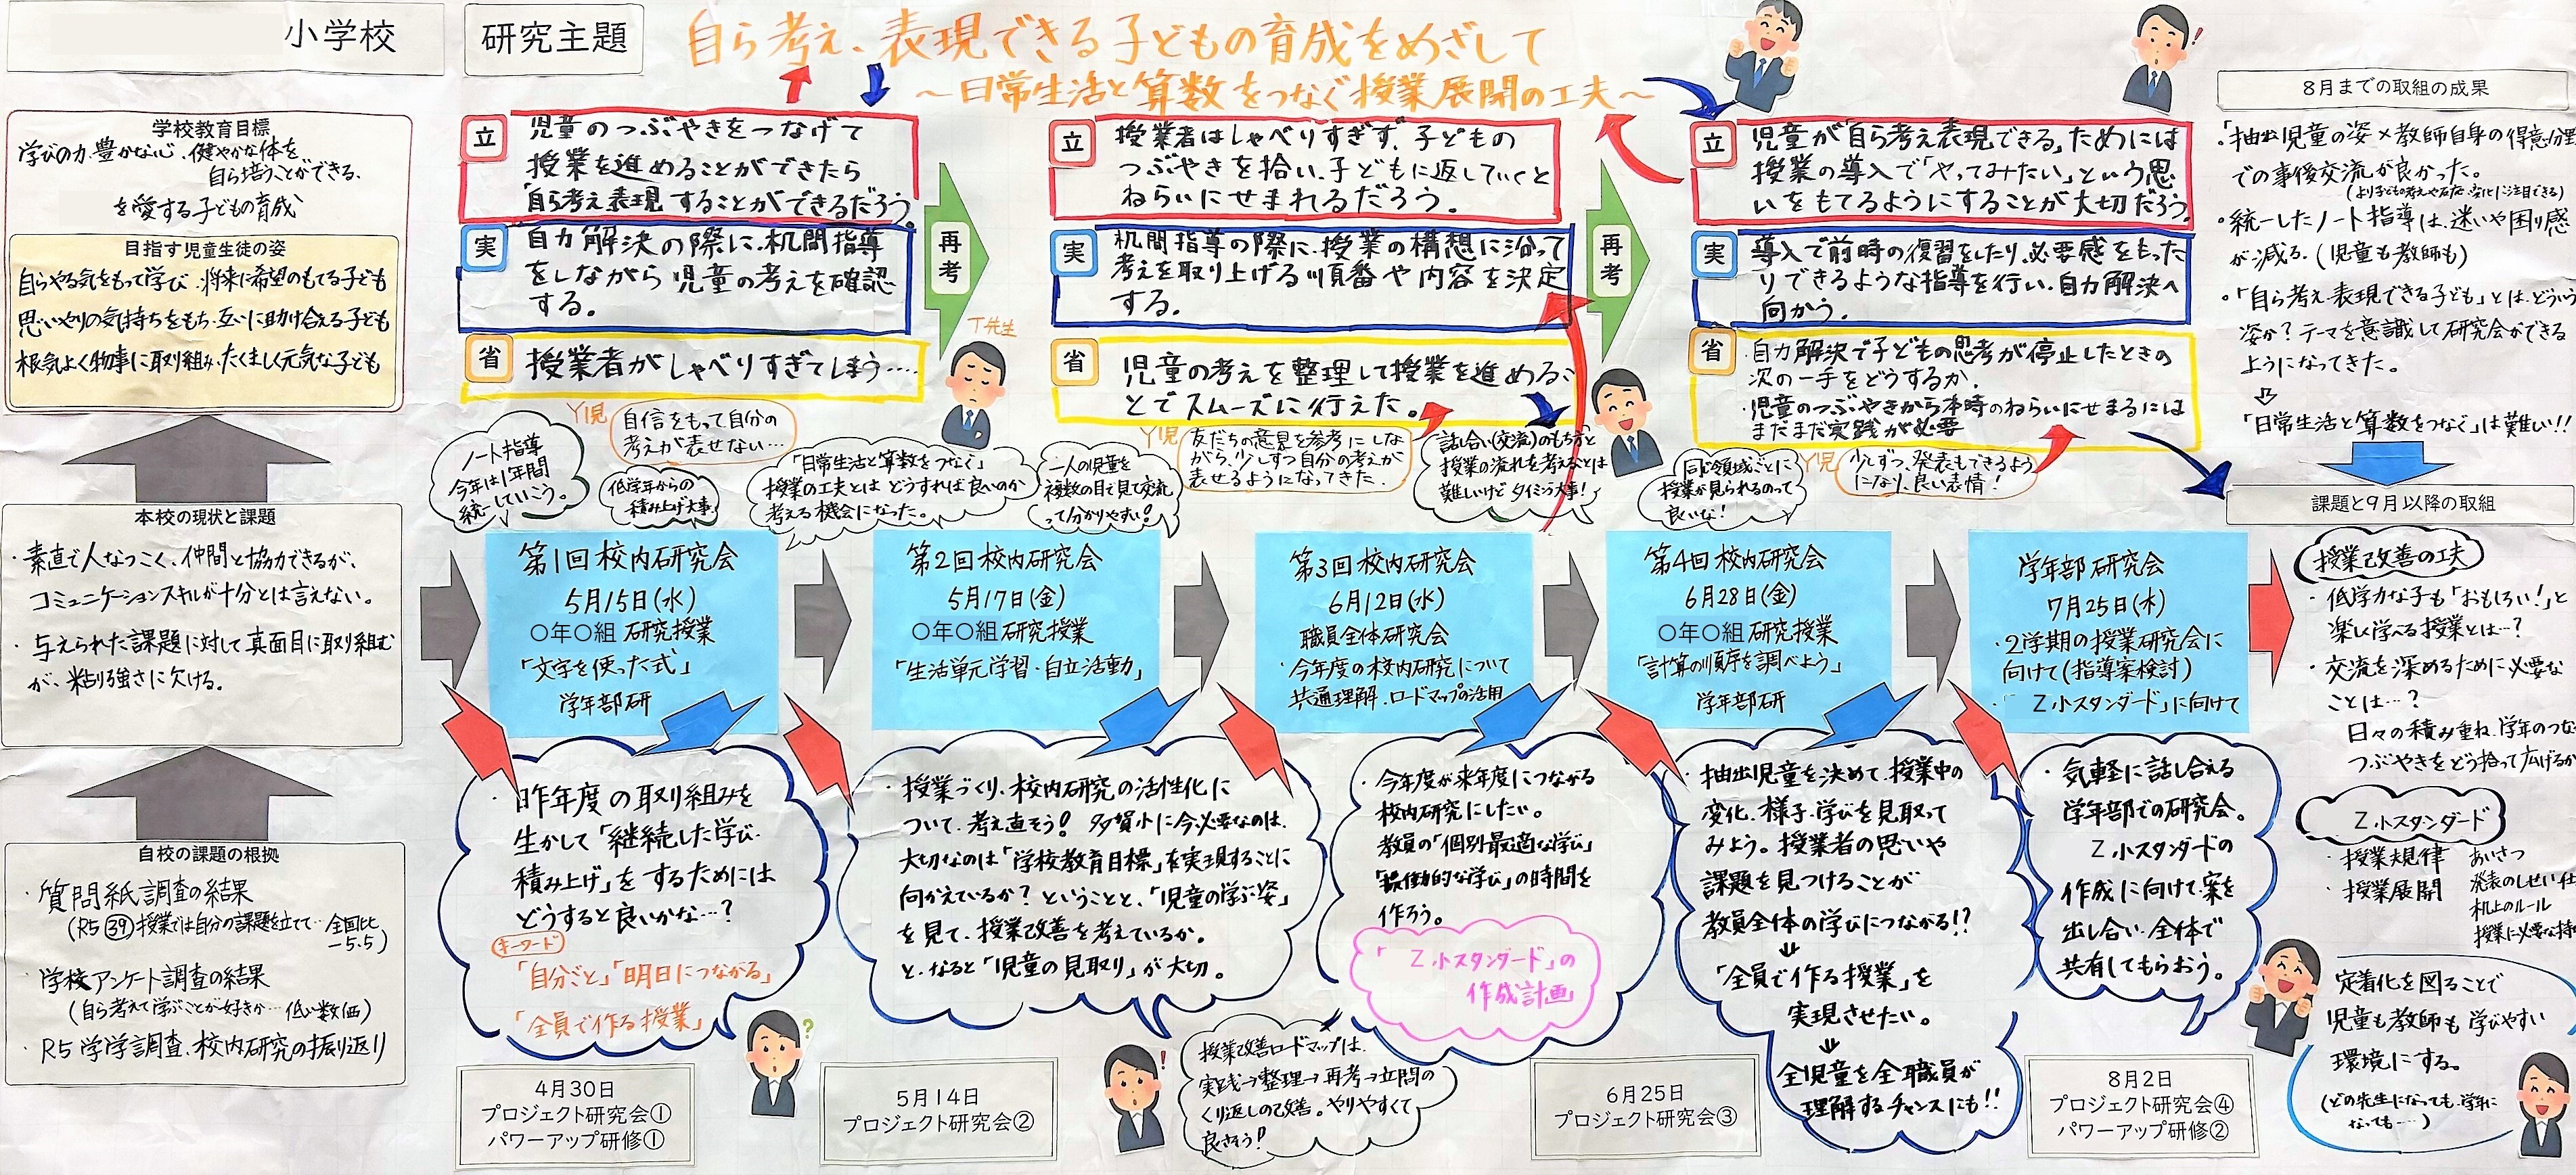 小学校
研究主題
自ら考え、表現できる子どもの育成をめざして
～日常生活と算数をつなぐ授業展開の工夫～
学校教育目標
学びの力、豊かな心、健やかな体を
自ら培うことができる、
を愛する子どもの育成
目指す児童生徒の姿
自らやる気をもって学び、将来に希望のもてる子ども
思いやりの気持ちをもち、互いに助け合える子ども
根気よく物事に取り組み、たくましく元気な子ども
本校の現状と課題
・素直で人なつこく、仲間と協力できるが、
コミュニケーションスキルが十分とは言えない。
・与えられた課題に対して真面目に取り組む
が、粘り強さに欠ける。
自校の課題の根拠
・質問紙調査の結果
(R5 ㊴ 授業では自分の課題を立てて… 全国比
-5.5)
・学校アンケート調査の結果
(自ら考えて学ぶことが好きか… 低い数値)
・R5 学学調査、校内研究の振り返り
立
児童のつぶやきをつなげて
授業を進めることができたら
「自ら考え表現」することができるだろう。
実
自力解決の際に、机間指導
をしながら児童の考えを確認
する。
省
授業者がしゃべりすぎてしまう….
再考
T先生
立
授業者はしゃべりすぎず、子どもの
つぶやきを拾い、子どもに返していくと
ねらいにせまれるだろう。
実
机間指導の際に、授業の構想に沿って
考えを取り上げる順番や内容を決定
する。
省
児童の考えを整理して授業を進めるこ
とでスムーズに行えた。
再考
立
児童が「自ら考え表現できる」ためには
授業の導入で「やってみたい」という思
いをもてるようにすることが大切だろう。
実
導入で前時の復習をしたり、必要感をもった
りできるような指導を行い、自力解決へ
向かう。
省
・自力解決で子どもの思考が停止したときの
次の一手をどうするか。
・児童のつぶやきから本時のねらいにせまるには
まだまだ実践が必要
ノート指導
今年は1年間
統一していこう。
Y児
自信をもって自分の
考えが表せない…
低学年からの
積み上げ大事
「日常生活と算数をつなぐ」
授業の工夫とは どうすれば良いのか
考える機会になった。
一人の児童を
複数の目で見て交流
って分かりやすい!
Y児
友だちの意見を参考にしな
がら、少しずつ自分の考えが
表せるようになってきた。
話し合い(交流)のもち方と
授業の流れを考えることは
難しいけど タイミング大事!
同じ領域ごとに
授業が見られるのって
良いな!
Y児
少しずつ、発表もできるよう
になり、良い表情!
第1回校内研究会
5月15日(水)
〇年〇組 研究授業
「文字を使った式」
学年部研
第2回校内研究会
5月17日(金)
〇年〇組 研究授業
「生活単元学習・自立活動」
第3回校内研究会
6月12日(水)
職員全体研究会
・今年度の校内研究について
共通理解、ロードマップの活用
第4回校内研究会
6月28日(金)
〇年〇組 研究授業
「計算の順序を調べよう」
学年部研
学年部研究会
7月25日(木)
・2学期の授業研究会に
向けて(指導案検討)
・「Z小スタンダード」に向けて
・昨年度の取り組みを
生かして「継続した学び・
積み上げ」をするためには
どうすると良いかな…?
キーワード
「自分ごと」「明日につながる」
「全員で作る授業」
・授業づくり、校内研究の活性化に
ついて、考え直そう! 多賀小に今、必要なのは、
大切なのは「学校教育目標」を実現することに
向かえているか? ということと、「児童の学ぶ姿」
を見て、授業改善を考えているか。
と、なると「児童の見取り」が大切。
・今年度が来年度につながる
校内研究にしたい。
教員の「個別最適な学び」
「協働的な学び」の時間を
作ろう。
「Z小スタンダード」の
作成計画
・抽出児童を決めて、授業中の
変化、様子、学びを見取って
みよう。授業者の思いや
課題を見つけることが
教員全体の学びにつながる!?
↓
「全員で作る授業」を
実現させたい。
↓
全児童を全職員が
理解するチャンスにも!!
・気軽に話し合える
学年部での研究会。
Z小スタンダードの
作成に向けて、案を
出し合い、全体で
共有してもらおう。
4月30日
プロジェクト研究会①
パワーアップ研修①
5月14日
プロジェクト研究会②
授業改善ロードマップは、
実践→整理→再考→立間の
くり返しの改善。やりやすくて
良さそう!
6月25日
プロジェクト研究会③
8月2日
プロジェクト研究会④
パワーアップ研修②
8月までの取組の成果
・「抽出児童の姿×教師自身の得意分野」
での事後交流が良かった。
・統一したノート指導は、迷いや困り感
が減る。(児童も教師も)
・「自ら考え表現できる子ども」とは、どういう
姿か? テーマを意識して研究会ができる
ようになってきた。
⇩
「日常生活と算数をつなぐ」は難しい!!
課題と9月以降の取組
授業改善の工夫
・低学力な子も「おもしろい!」と
楽しく学べる授業とは…?
・交流を深めるために必要な
ことは…?
日々の積み重ね、学年のつな
つぶやきをどう拾って広げるか
Z小スタンダード
・授業規律
・授業展開
あいさつ
発表のしせい、仕
机上のルール
授業に必要な持
定着化を図ることで
児童も教師も学びやすい
環境にする。
(どの先生になっても、学年に
なっても…)